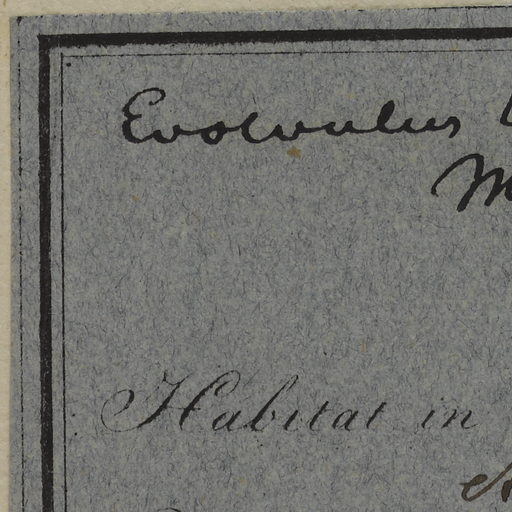 Evolvulus
Habitat in